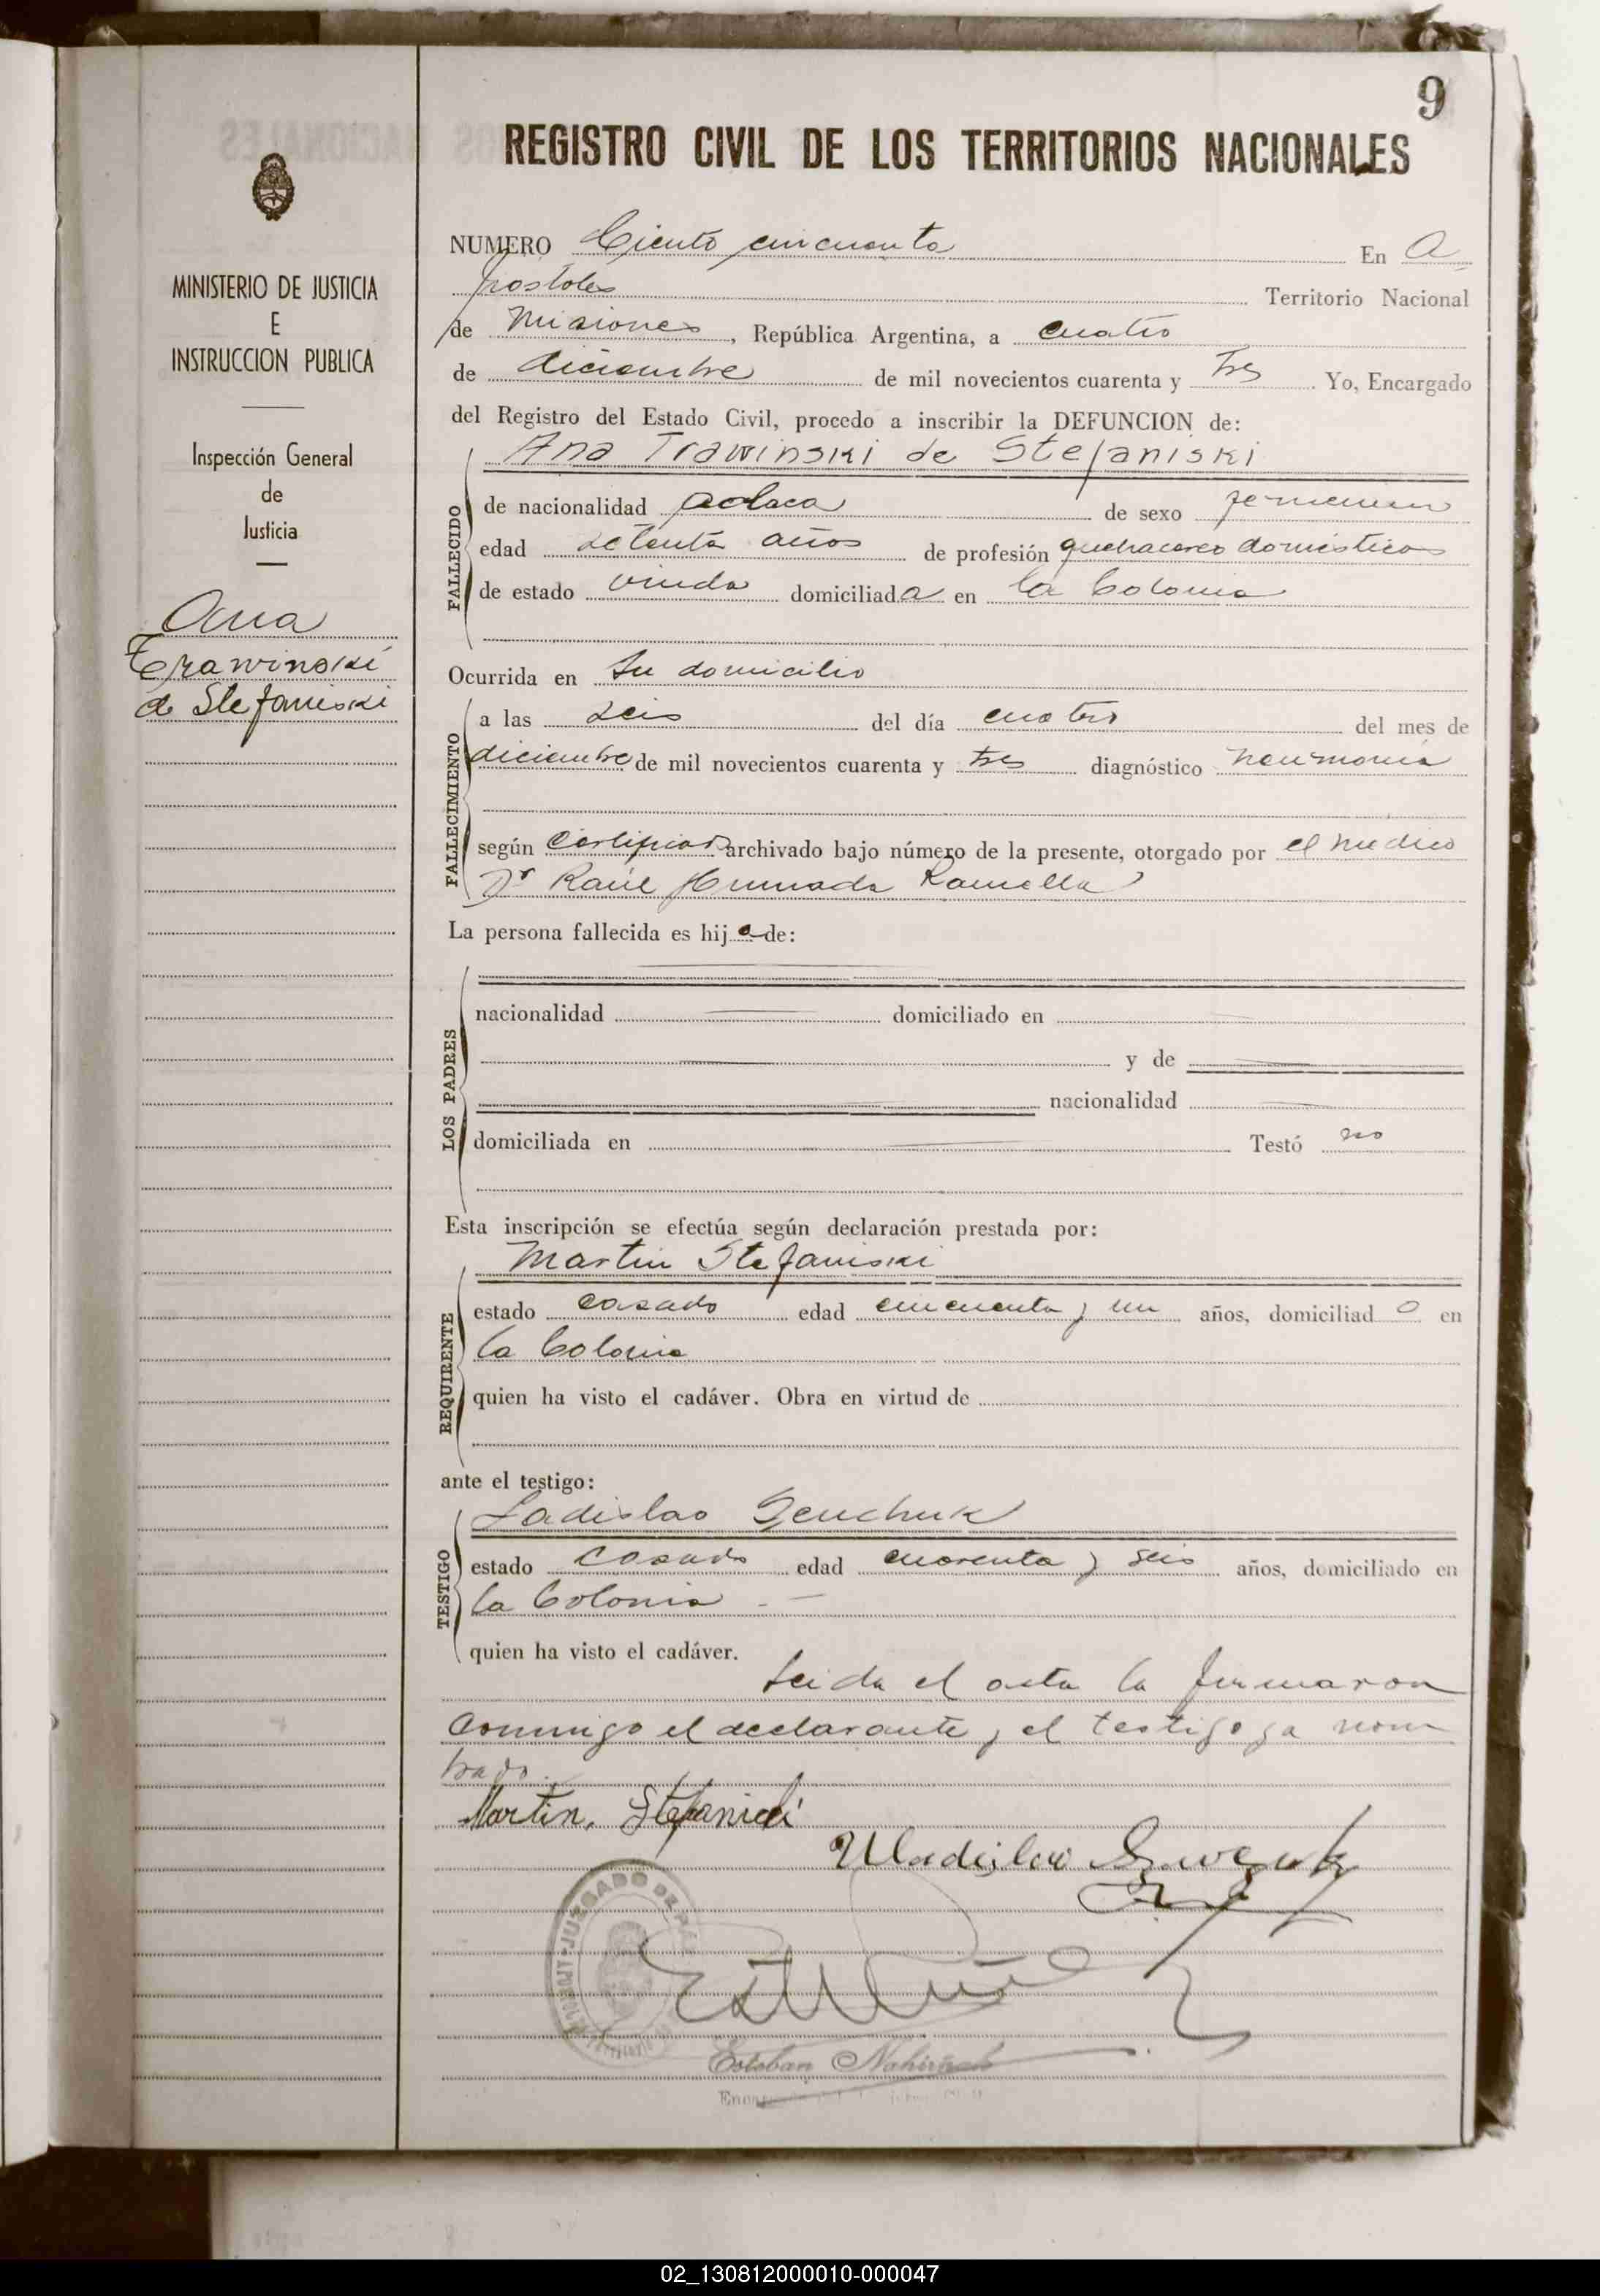 9
REGISTRO CIVIL DE LOS TERRITORIOS NACIONALES
MINISTERIO DE JUSTICIA
E
INSTRUCCION PUBLICA
Inspección General
de
Justicia
Ana
Trawinski
de Stefaniski
NUMERO Ciento cincuenta En A
póstoles Territorio Nacional
de Misiones, República Argentina, a cuatro
de diciembre de mil novecientos cuarenta y tres. Yo, Encargado
del Registro del Estado Civil, procedo a inscribir la DEFUNCION de:
Ana Trawinski de Stefaniski
FALLECIDO
de nacionalidad polaca de sexo femenino
edad setenta años de profesión quehaceres domésticos
de estado viuda domiciliada en la Colonia
Ocurrida en su domicilio
FALLECIMIENTO
a las seis del día cuatro del mes de
diciembre de mil novecientos cuarenta y tres diagnóstico neumonía
según certificado archivado bajo número de la presente, otorgado por el médico
Dr Raúl Humada Ramella
La persona fallecida es hija de:
LOS PADRES
nacionalidad domiciliado en
y de
nacionalidad
domiciliada en Testó no
Esta inscripción se efectúa según declaración prestada por:
Martin Stefaniski
REQUIRENTE
estado casado edad cincuenta y un años, domiciliado en
la Colonia
quien ha visto el cadáver. Obra en virtud de
ante el testigo:
Ladislao
TESTIGO
estado casado edad cuarenta y seis años, domiciliado en
la Colonia
quien ha visto el cadáver.
Leida el acta la firmaron
conmigo el declarante y el testigo ya nom
brado.
Martin, Stefaniski
Uladislao
JUZGADO DE PAZ
Esteban
02_130812000010-000047